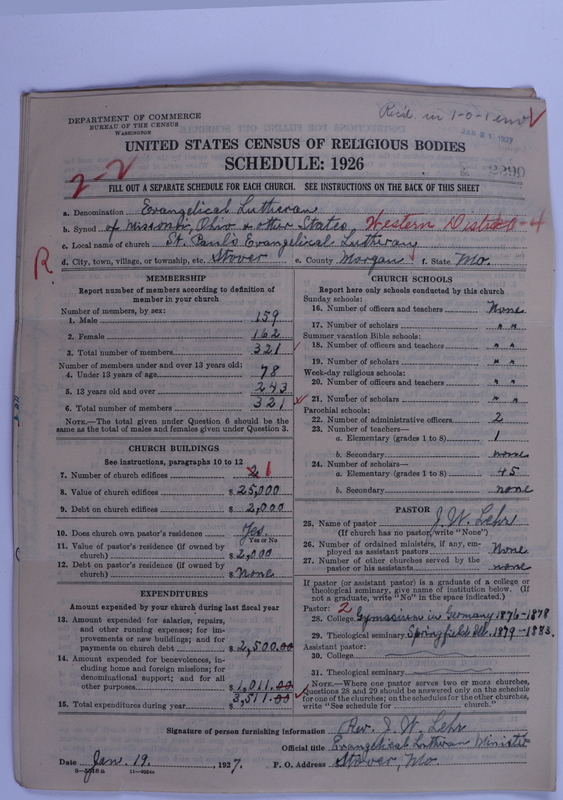 Rec'd. in 1-0-1 env
DEPARTMENT OF COMMERCE
BUREAU OF THE CENSUS
WASHINGTON
JAN 21 1927
UNITED STATES CENSUS OF RELIGIOUS BODIES
SCHEDULE: 1926
2-2
FILL OUT A SEPARATE SCHEDULE FOR EACH CHURCH. SEE INSTRUCTIONS ON THE BACK OF THIS SHEET
a. Denomination Evangelical Lutheran
b. Synod of Missouri, Ohio & other States, Western District-4
c. Local name of church St. Paul's Evangelical Lutheran
R. d. City, town, village, or township, etc. Stover e. County Morgan f. State Mo.
MEMBERSHIP
Report number of members according to definition of
member in your church
Number of members, by sex:
1. Male 159
2. Female 162
3. Total number of members 321
Number of members under and over 13 years old:
4. Under 13 years of age 78
5. 13 years old and over 243
6. Total number of members 321
NOTE.—The total given under Question 6 should be the
same as the total of males and females given under Question 3.
CHURCH BUILDINGS
See instructions, paragraphs 10 to 12
7. Number of church edifices 2 1
8. Value of church edifices $ 25,000
9. Debt on church edifices $ 2,000
10. Does church own pastor's residence Yes
Yes or No
11. Value of pastor's residence (if owned by
church) $ 2,000
12. Debt on pastor's residence (if owned by
church) $ None
EXPENDITURES
Amount expended by your church during last fiscal year
13. Amount expended for salaries, repairs,
and other running expenses; for im-
provements or new buildings; and for
payments on church debt $ 2,500.00
14. Amount expended for benevolences, in-
cluding home and foreign missions; for
denominational support; and for all
other purposes $ 1,011.00
15. Total expenditures during year $ 3,511.00
CHURCH SCHOOLS
Report here only schools conducted by this church
Sunday schools:
16. Number of officers and teachers None
17. Number of scholars " "
Summer vacation Bible schools:
18. Number of officers and teachers " "
19. Number of scholars " "
Week-day religious schools:
20. Number of officers and teachers " "
21. Number of scholars " "
Parochial schools:
22. Number of administrative officers 2
23. Number of teachers—
a. Elementary (grades 1 to 8) 1
b. Secondary none
24. Number of scholars—
a. Elementary (grades 1 to 8) 45
b. Secondary none
PASTOR
25. Name of pastor J. W. Lehr
(If church has no pastor, write "None")
26. Number of ordained ministers, if any, em-
ployed as assistant pastors None
27. Number of other churches served by the
pastor or his assistants none
If pastor (or assistant pastor) is a graduate of a college or
theological seminary, give name of institution below. (If
not a graduate, write "No" in the space indicated.)
Pastor: 2
28. College Gymasium in Germany 1876-1878
29. Theological seminary Springfield Ill. 1879-1883.
Assistant pastor:
30. College
31. Theological seminary
NOTE.—Where one pastor serves two or more churches,
Questions 28 and 29 should be answered only on the schedule
for one of the churches; on the schedule for the other churches,
write "See schedule for church."
Signature of person furnishing information Rev. J. W. Lehr
Official title Evangelical Lutheran Minister
Date Jan. 19, 1927. P. O. Address Stover, Mo.